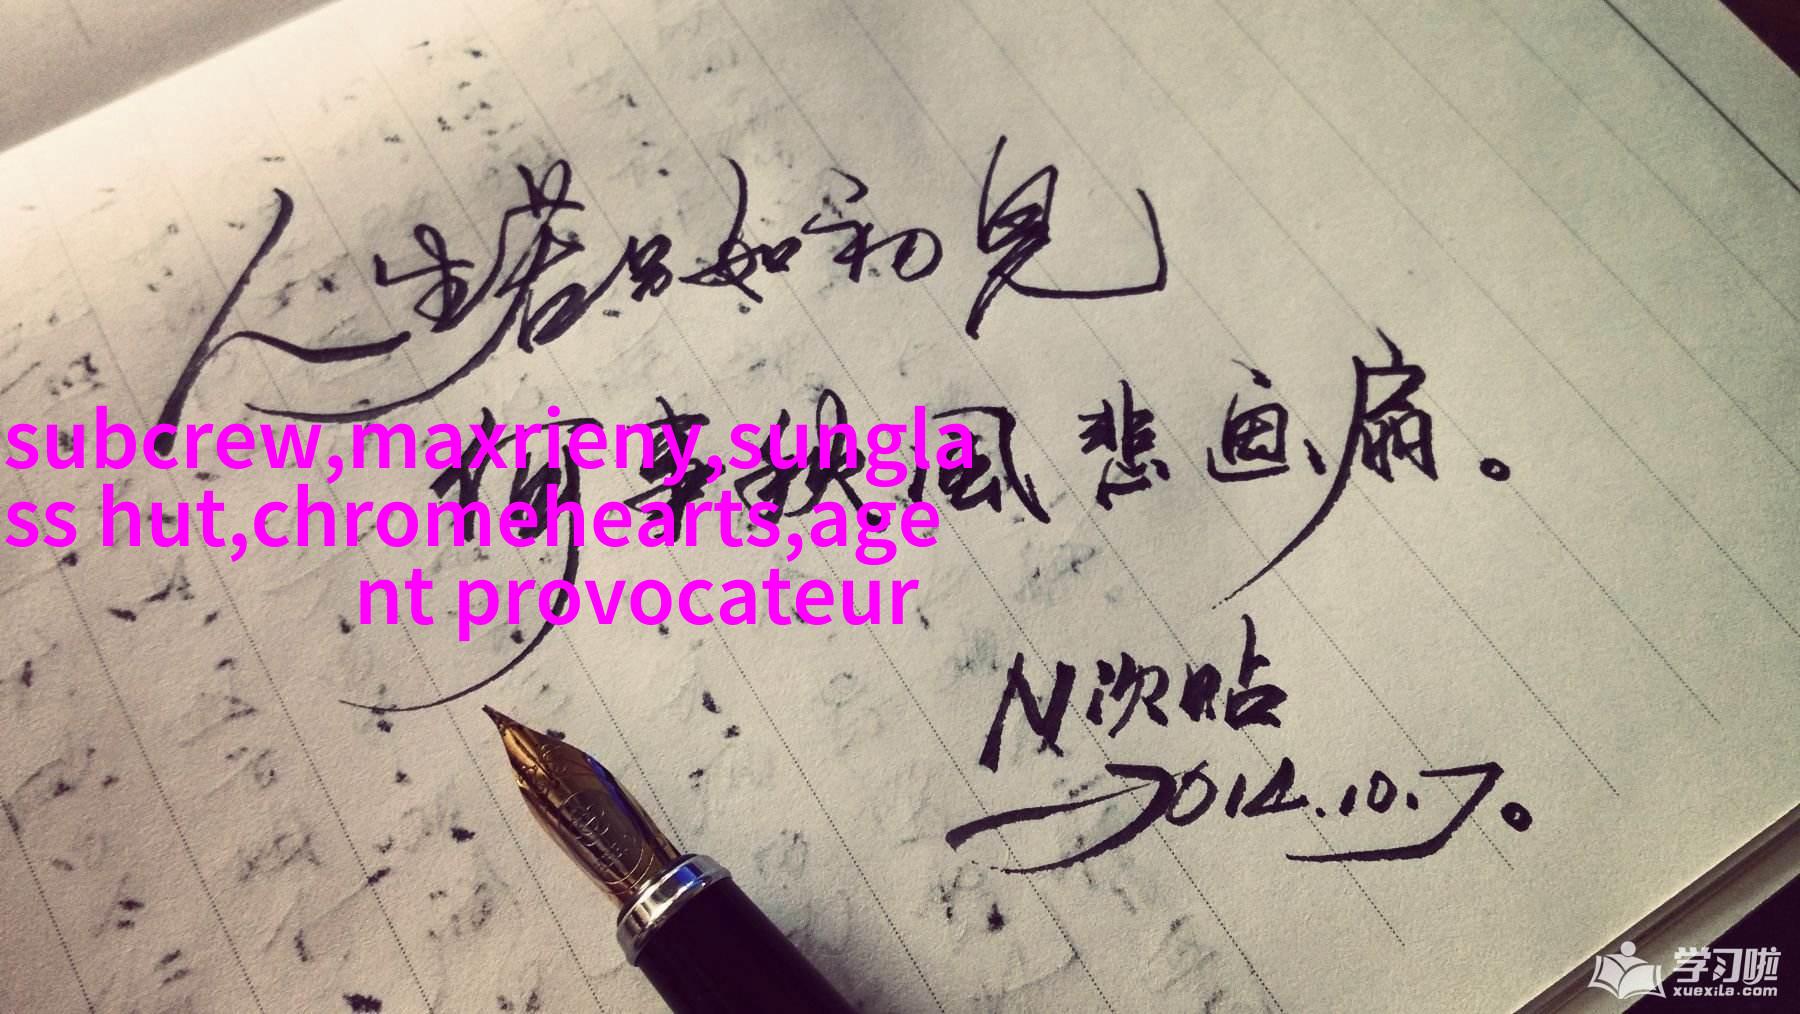 人生若只如初见
何事秋风悲画扇。
subcrew,maxrieny,sungla
ss hut,chromehearts,age
nt provocateur
N次贴
2014.10.7。
学习啦
xuexila.com